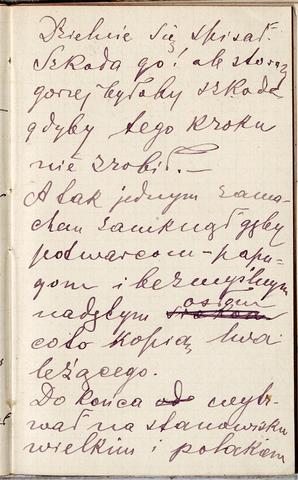 Dzielnie się spisał.
Szkoda go! ale stokroć
gorzej byłoby szkoda
gdyby tego kroku
nie zrobił. —
A tak jednym zama-
chem zamknął gęby
potwarcom - papu-
gom i bezmyślnym
nadętym osłom
co to kopią lwa
leżącego.
Do końca od wytr-
wał na stanowisku
wielkim i polakiem